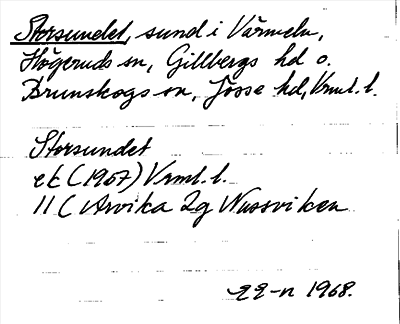 Storsundet, sund i Värmeln,
Högeruds sn, Gillbergs hd o.
Brunskogs sn, Jösse hd, Vrml. l.
Storsundet
ek (1967) Vrml. l.
11 C Arvika 2g Nussviken
1968.